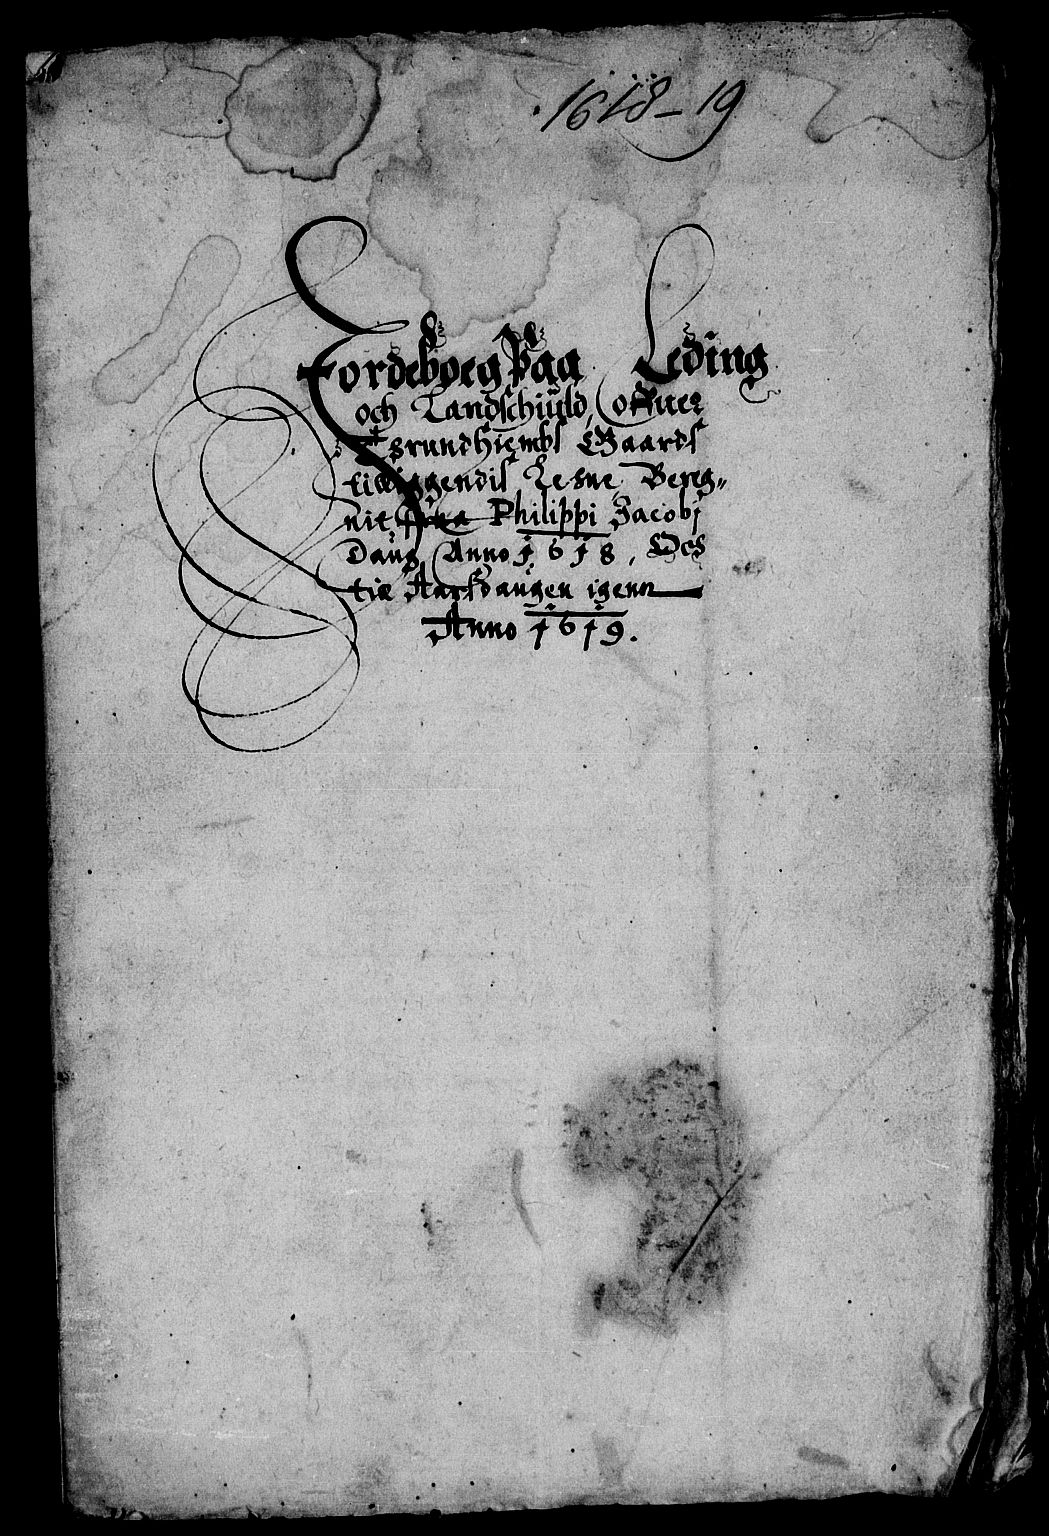 1618-19
Jordeboeg Paa Leding
och Landschiuld, offuer
Trundhiembs Gaards
tilliggendis Lehne, Bereg„
nit fraa Philippi Jacobj
Daug Anno 1618, Oes
till Aarsdaugen igenn
Anno 1619.